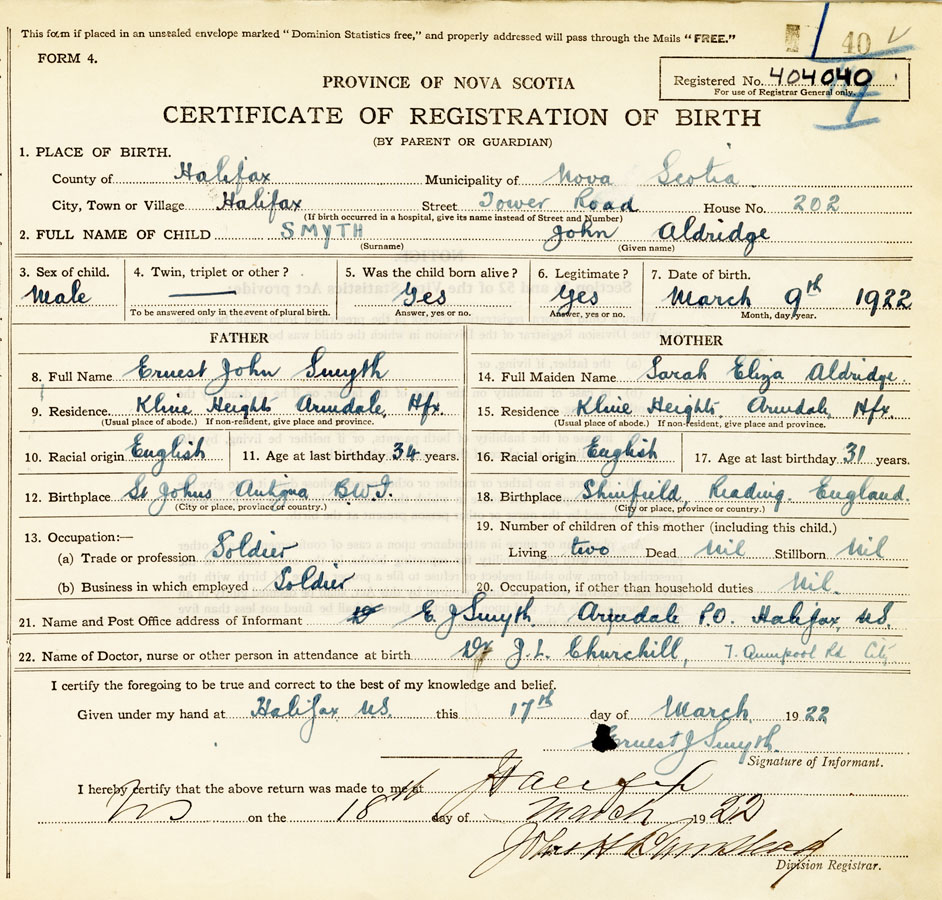 This form if placed in an unsealed envelope marked "Dominion Statistics free," and properly addressed will pass through the Mails "FREE."
40
FORM 4.
PROVINCE OF NOVA SCOTIA
Registered No. 404040
For use of Registrar General only.
CERTIFICATE OF REGISTRATION OF BIRTH
(BY PARENT OR GUARDIAN)
1. PLACE OF BIRTH.
County of Halifax Municipality of Nova Scotia
City, Town or Village Halifax Street Tower Road House No. 202
(If birth occurred in a hospital, give its name instead of Street and Number)
2. FULL NAME OF CHILD SMYTH John Aldridge
(Surname) (Given name)
3. Sex of child. 4. Twin, triplet or other? 5. Was the child born alive? 6. Legitimate? 7. Date of birth.
Male — Yes Yes March 9th 1922
To be answered only in the event of plural birth. Answer, yes or no. Answer, yes or no. Month, day, year.
FATHER
8. Full Name Ernest John Smyth
9. Residence. Kline Heights Armdale, Hfx
(Usual place of abode.) If non-resident, give place and province.
10. Racial origin English 11. Age at last birthday 34 years.
12. Birthplace St Johns Antigua B.W.I.
(City or place, province or country.)
13. Occupation:—
(a) Trade or profession Soldier
(b) Business in which employed Soldier
MOTHER
14. Full Maiden Name Sarah Eliza Aldridge
15. Residence Kline Heights. Armdale, Hfx.
(Usual place of abode.) If non-resident, give place and province.
16. Racial origin English 17. Age at last birthday 31 years.
18. Birthplace Shinfield, Reading. England.
(City or place, province or country.)
19. Number of children of this mother (including this child.)
Living two Dead Nil Stillborn Nil
20. Occupation, if other than household duties Nil.
21. Name and Post Office address of Informant E. J Smyth. Armdale P.O. Halifax, NS.
22. Name of Doctor, nurse or other person in attendance at birth Dr J. L. Churchill, Rd City
I certify the foregoing to be true and correct to the best of my knowledge and belief.
Given under my hand at Halifax NS. this 17th day of March 1922
Ernest J Smyth.
Signature of Informant.
I hereby certify that the above return was made to me at Halifax
NS on the 18th day of March 1922
John H
Division Registrar.